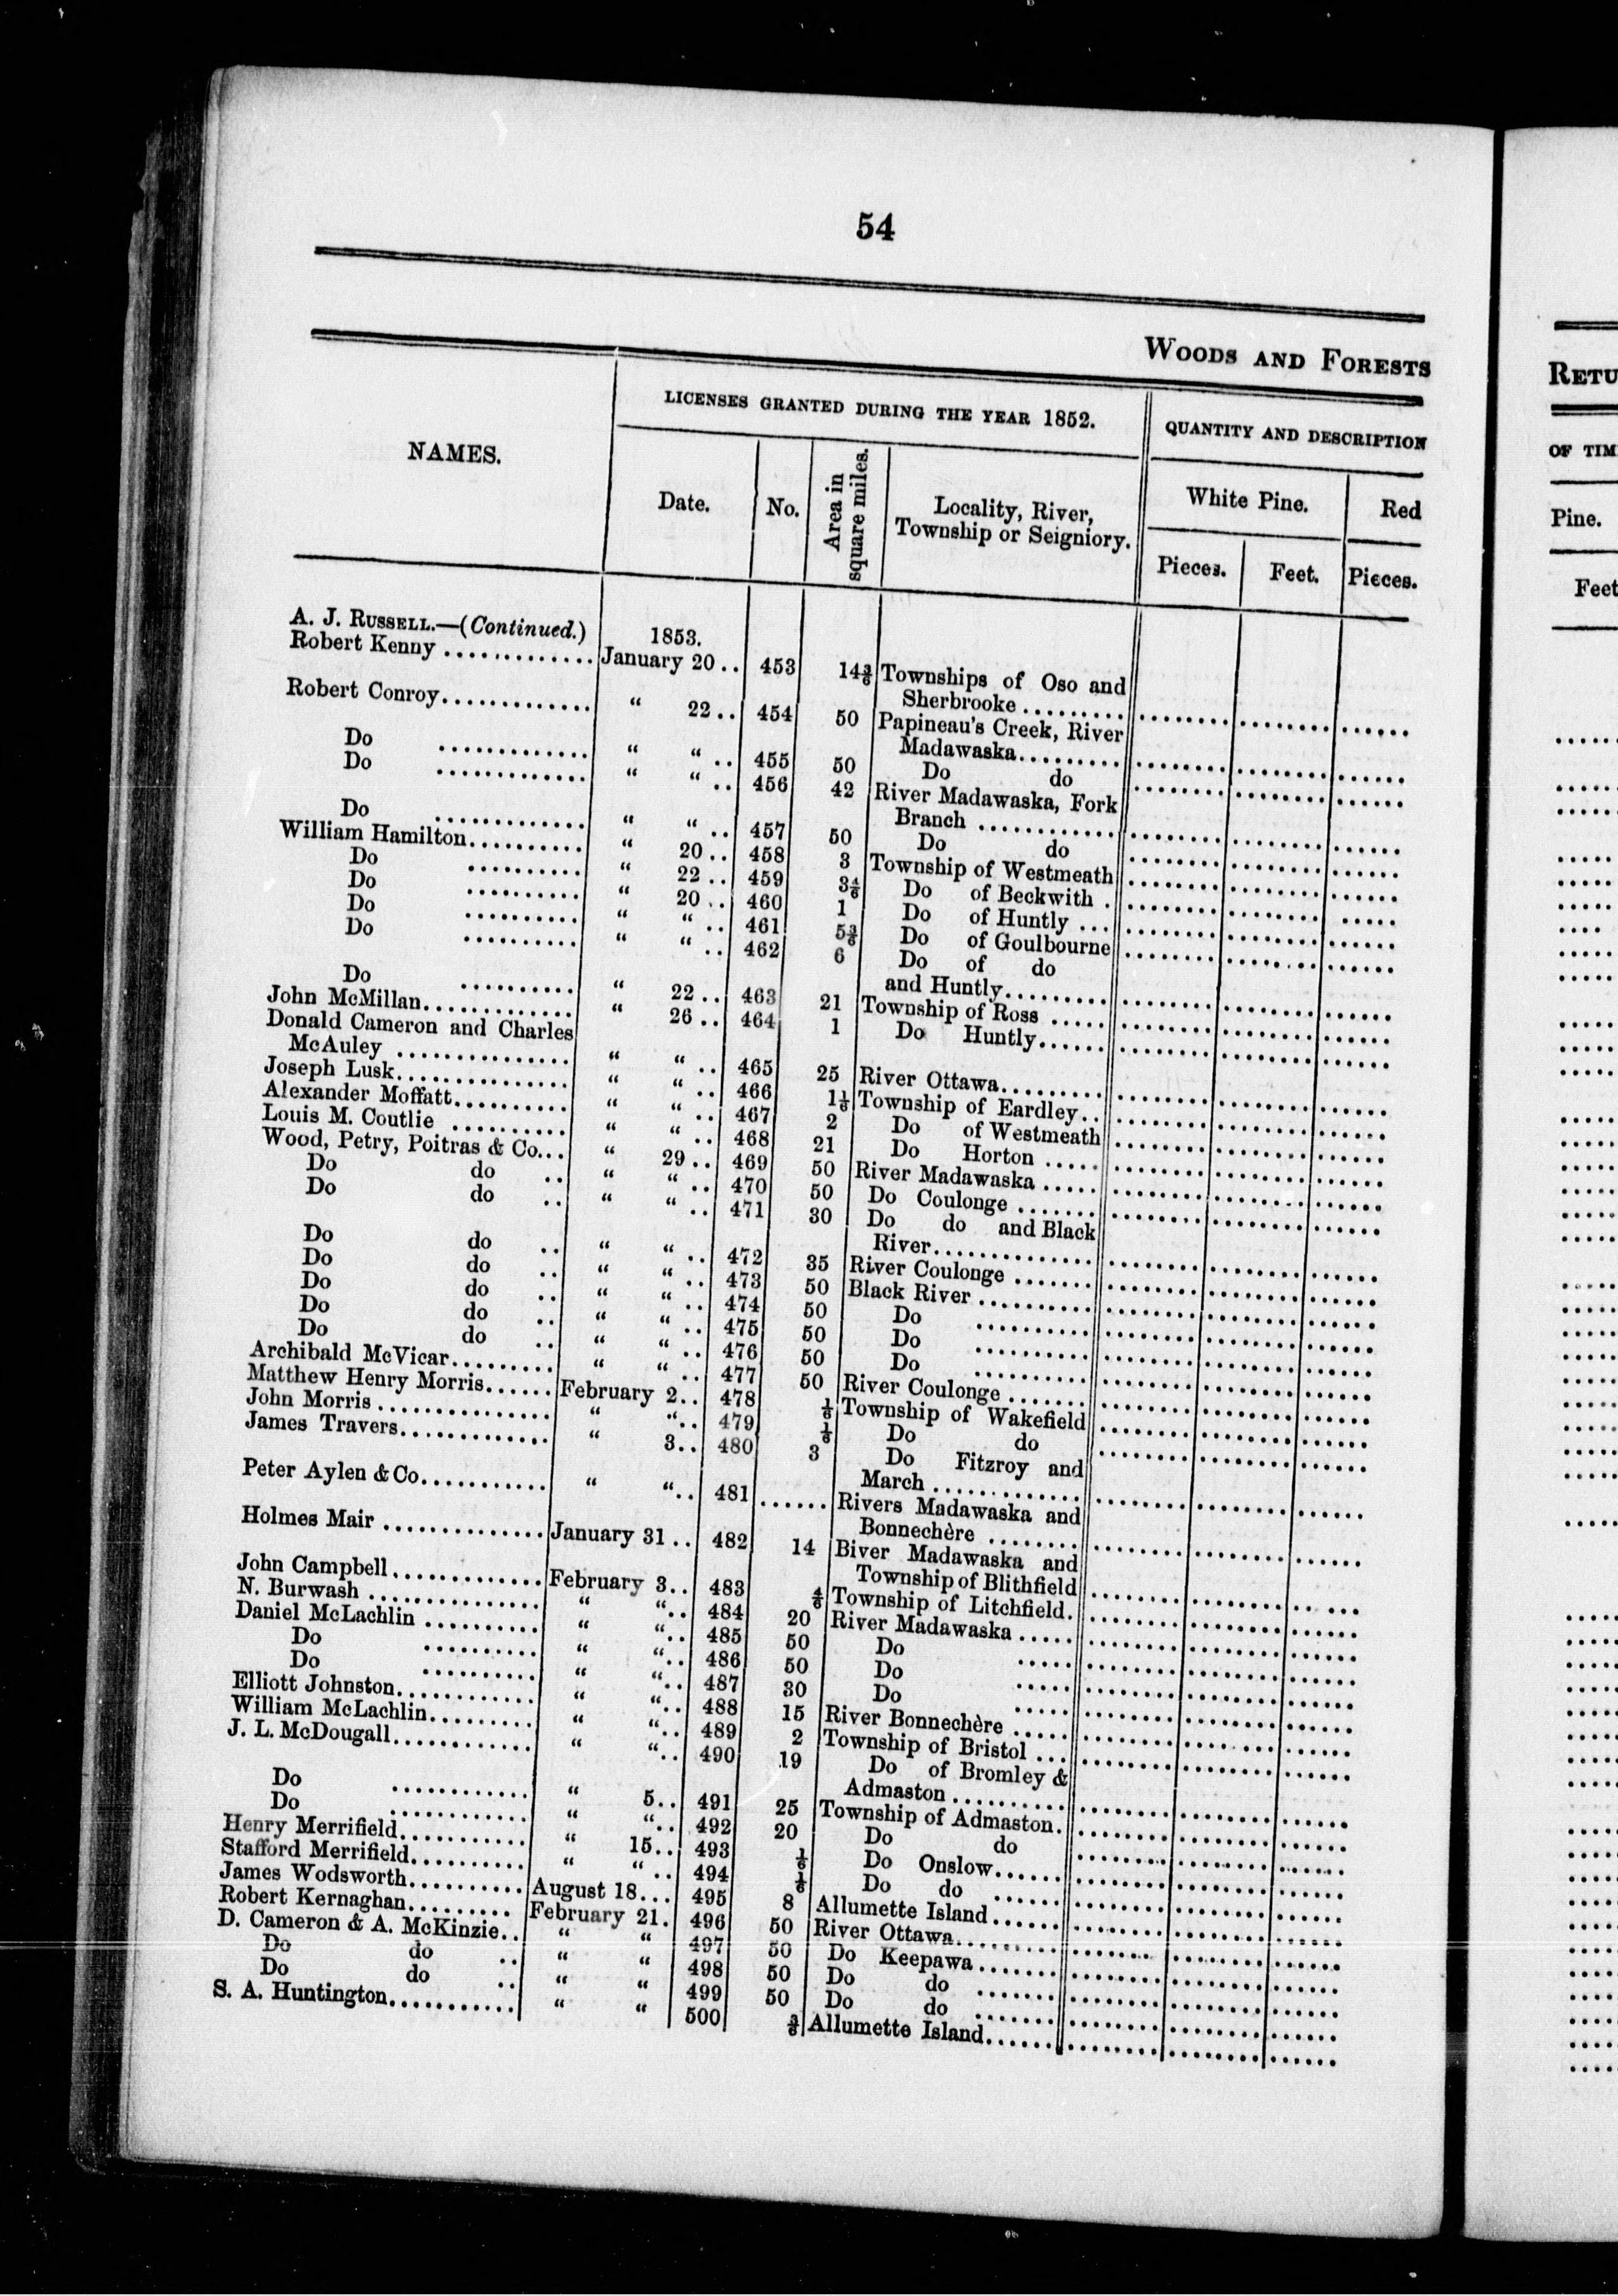 54
WOODS AND FORESTS
NAMES.
LICENSES GRANTED DURING THE YEAR 1852.
QUANTITY AND DESCRIPTION
Date.
No.
Area in square miles.
Locality, River, Township or Seigniory.
White Pine.
Red
Pieces.
Feet.
Pieces.
A. J. RUSSELL.—(Continued.) 1853.
Robert Kenny ............. January 20.. 453 14 3/6 Townships of Oso and
Sherbrooke .........
Robert Conroy............. “ 22.. 454 50 Papineau's Creek, River
Madawaska.........
Do ............. “ “ .. 455 50 Do do
Do ............. “ “ .. 456 42 River Madawaska, Fork
Branch ............
Do ............. “ “ .. 457 50 Do do
William Hamilton.......... “ 20.. 458 3 Township of Westmeath
Do .......... “ 22.. 459 3 4/6 Do of Beckwith .
Do .......... “ 20.. 460 1 Do of Huntly ...
Do .......... “ “ .. 461 5 3/6 Do of Goulbourne
Do .......... “ “ .. 462 6 Do of do
and Huntly.........
Do .......... “ 22.. 463 21 Township of Ross .....
John McMillan............. “ 26.. 464 1 Do Huntly......
Donald Cameron and Charles
McAuley ............... “ “ .. 465 25 River Ottawa.........
Joseph Lusk............... “ “ .. 466 1 1/6 Township of Eardley..
Alexander Moffatt.......... “ “ .. 467 2 Do of Westmeath
Louis M. Coutlie .......... “ “ .. 468 21 Do Horton .....
Wood, Petry, Poitras & Co... “ 29.. 469 50 River Madawaska .....
Do do .. “ “ .. 470 50 Do Coulonge .......
Do do .. “ “ .. 471 30 Do do and Black
River..............
Do do .. “ “ .. 472 35 River Coulonge .......
Do do .. “ “ .. 473 50 Black River ..........
Do do .. “ “ .. 474 50 Do ..........
Do do .. “ “ .. 475 50 Do ..........
Do do .. “ “ .. 476 50 Do ..........
Archibald McVicar......... “ “ .. 477 50 River Coulonge .......
Matthew Henry Morris...... February 2.. 478 1/6 Township of Wakefield
John Morris ............... “ “.. 479 1/6 Do do
James Travers............. “ 3.. 480 3 Do Fitzroy and
March .............
Peter Aylen & Co........... “ “.. 481 ...... Rivers Madawaska and
Bonnechère ........
Holmes Mair .............. January 31.. 482 14 Biver Madawaska and
Township of Blithfield
John Campbell............. February 3.. 483 4/6 Township of Litchfield.
N. Burwash ............... “ “.. 484 20 River Madawaska .....
Daniel McLachlin .......... “ “.. 485 50 Do .....
Do .......... “ “.. 486 50 Do .....
Do .......... “ “.. 487 30 Do .....
Elliott Johnston............ “ “.. 488 15 River Bonnechère .....
William McLachlin......... “ “.. 489 2 Township of Bristol ...
J. L. McDougall............ “ “.. 490 19 Do of Bromley &
Admaston ..........
Do ............ “ 5.. 491 25 Township of Admaston.
Do ............ “ “.. 492 20 Do do
Henry Merrifield........... “ 15.. 493 1/6 Do Onslow......
Stafford Merrifield.......... “ “ .. 494 1/6 Do do ......
James Wodsworth.......... August 18... 495 8 Allumette Island......
Robert Kernaghan......... February 21. 496 50 River Ottawa.........
D. Cameron & A. McKinzie.. “ “ 497 50 Do Keepawa.......
Do do .. “ “ 498 50 Do do .......
Do do .. “ “ 499 50 Do do .......
S. A. Huntington........... “ “ 500 3/6 Allumette Island......
RETU
OF TIM
Pine.
Feet